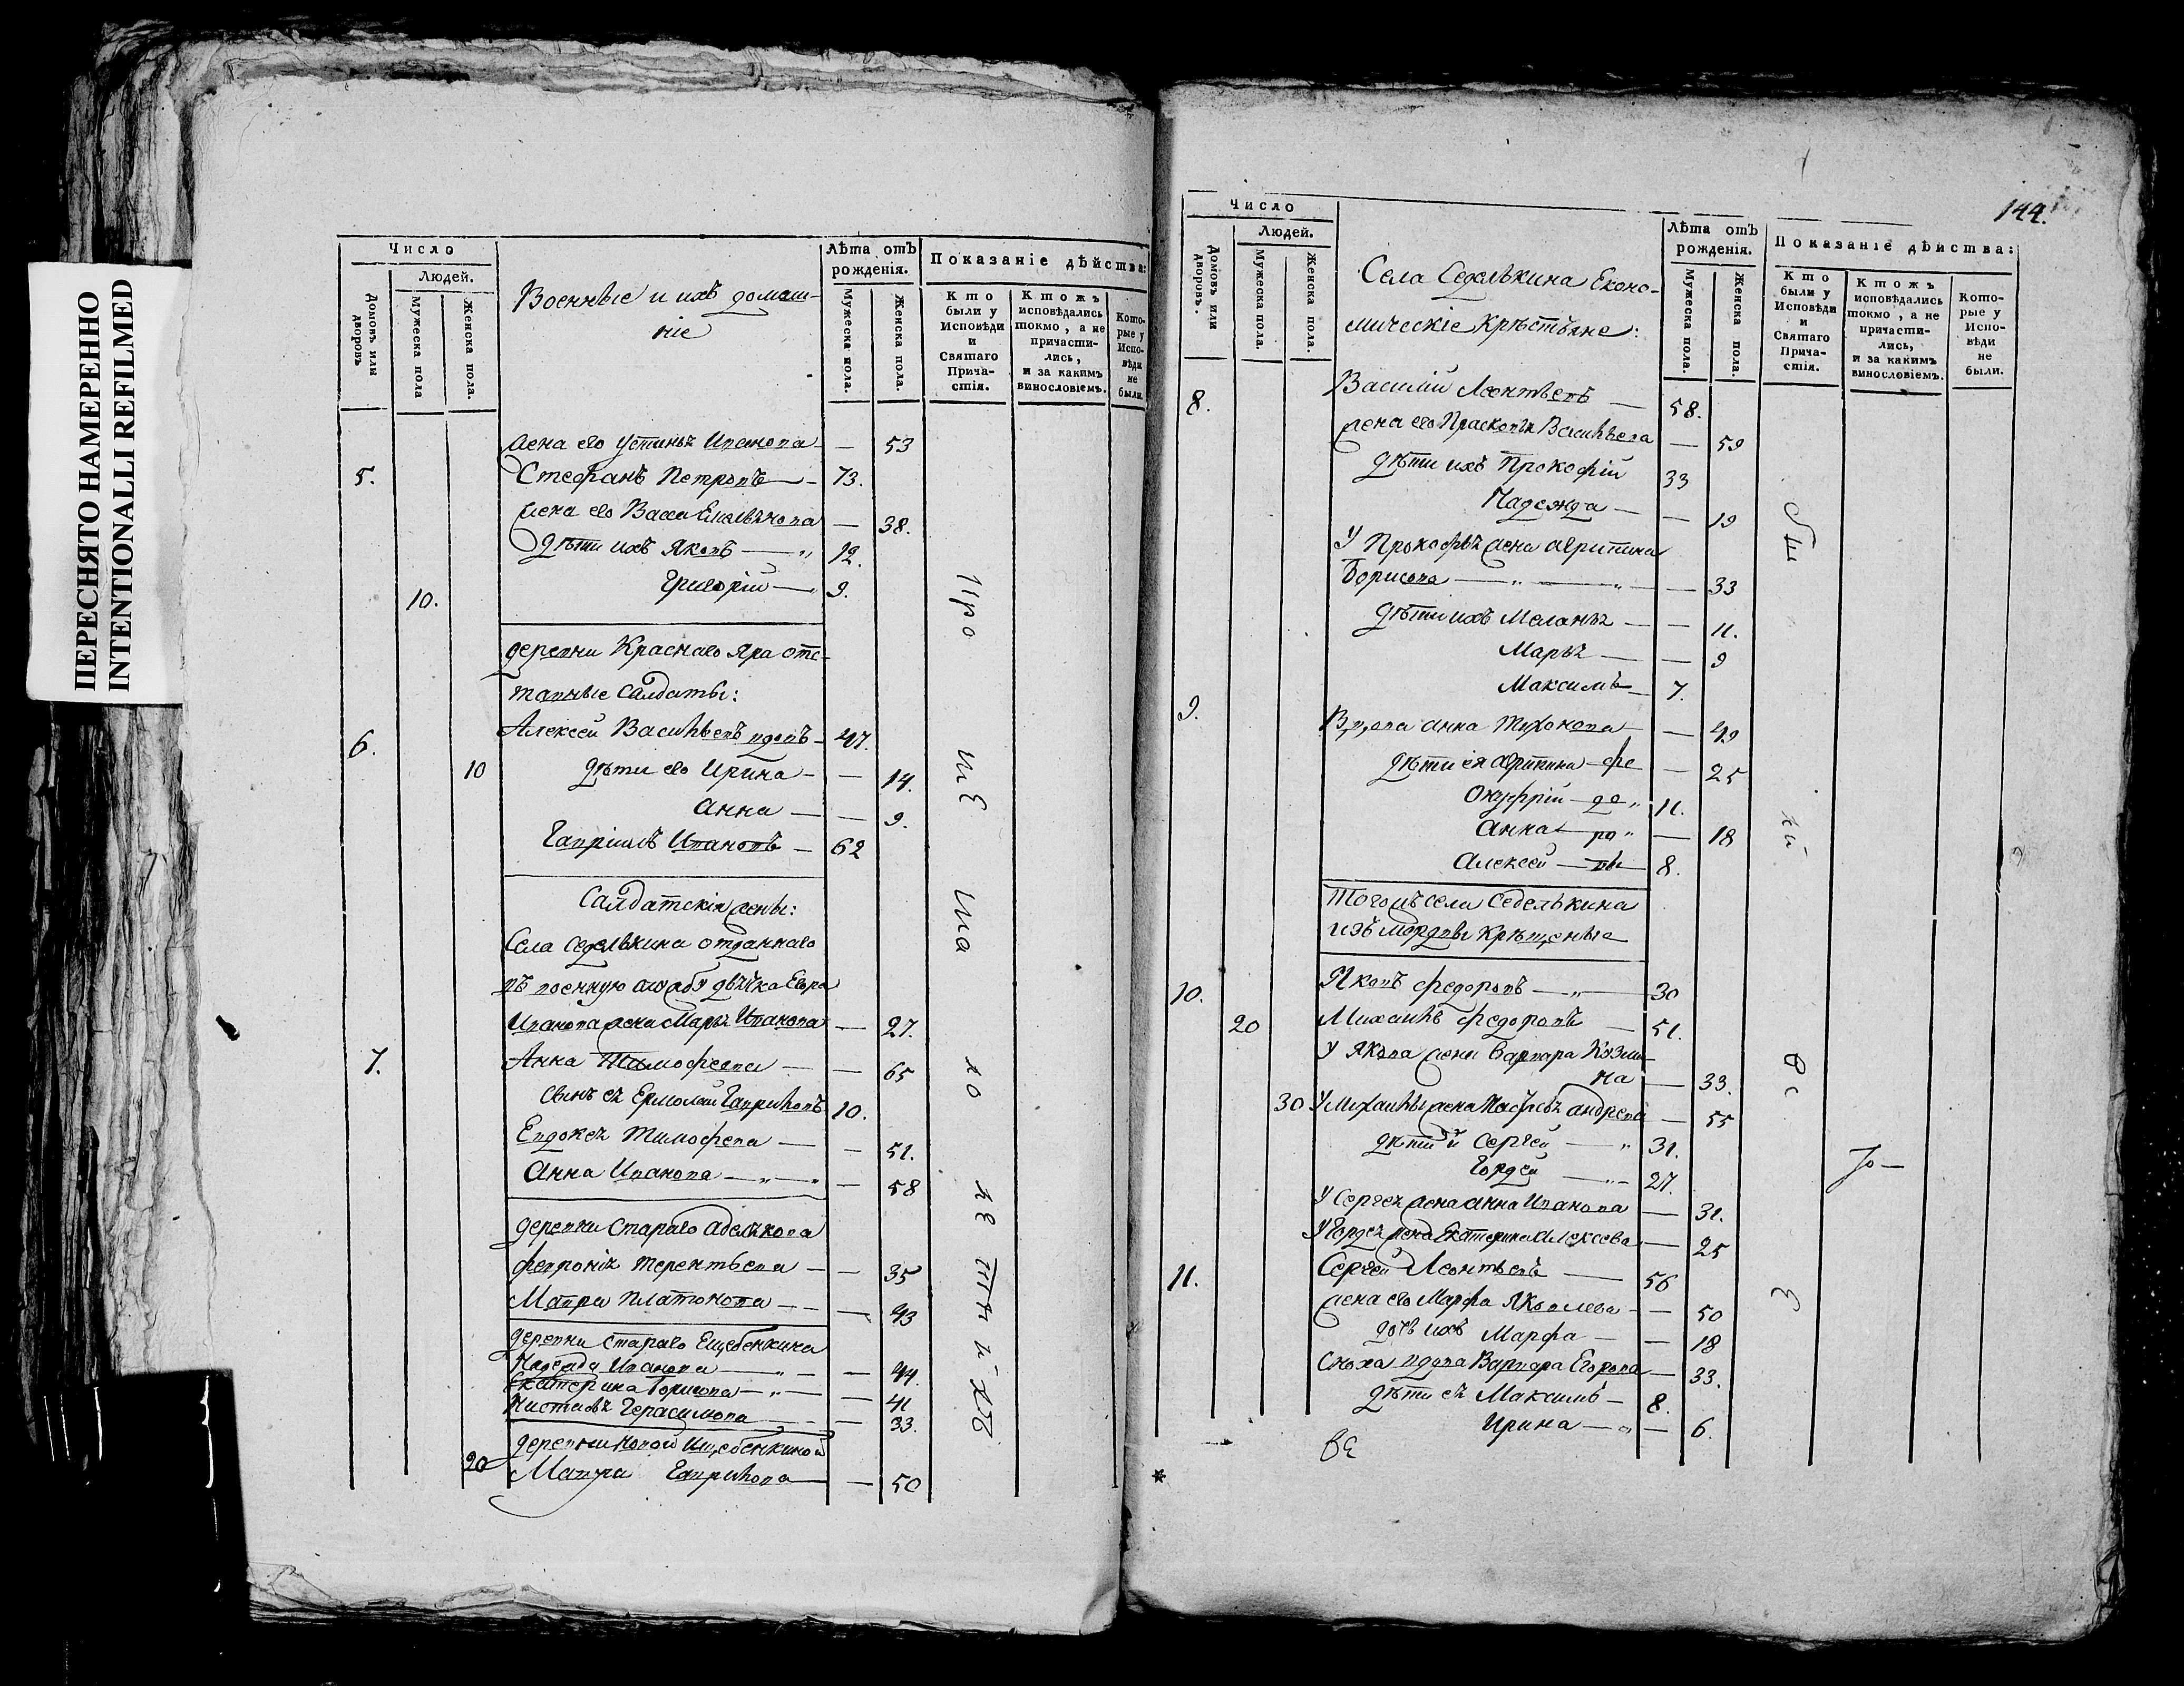 ПЕРЕСНЯТО НАМЕРЕННО
INTENTIONALLI REFILMED
Число
Людей.
Домовъ или дворовъ
Мужеска пола
Женска пола.
Военные и ихъ домаш-
ніе
Лѣта отъ рожденія.
Мужеска пола.
Женска пола.
Показаніе дѣйства:
Кто были у Исповѣди и Святаго Прича-стія.
Ктожъ исповѣдались токмо, а не причасти-лись, и за какимъ винословіемъ.
Кото-рые у Испо-вѣди не были.
жена его Устинья Иванова — 53
5. Стефанъ Петровъ — 73.
жена его Васса Емельянова — 38.
дѣти ихъ Яковъ — 12.
10. Григорій — 9.
деревни Краснаго Яра отс-
тавные салдаты:
6. Алексей Васильевъ вдовъ — 47.
10 дѣти его Ирина — 14.
Анна — 9.
Гавріилъ Ивановъ — 62
Салдатскія жены:
Села Седелькина отданнаго
въ военную службу дьячка Егора
Иванова жена Марья Иванова — 27.
7. Анна Тимофеева — 65
сынъ ея Ермолай Гавриловъ 10.
Евдокея Тимофеева — 51.
Анна Иванова — 58
деревни Стараго Аделякова
Феврония Терентьева — 35
Мавра Платонова — 43
деревни Стараго Ещебенкина
Надежда Иванова — 44.
Екатерина Борисова — 41
Настасья Герасимова — 33.
деревни Новой Ищебенкиной
20 Мавра Гаврилова — 50
144.
Число
Людей.
Домовъ или дворовъ.
Мужеска пола.
Женска пола.
Села Седелькина Еконо-
мическіе Крѣстьяне:
Лѣта отъ рожденія.
Мужеска пола.
Женска пола.
Показаніе дѣйства:
Кто были у Исповѣди и Святаго Прича-стія.
Ктожъ исповѣдались токмо, а не причасти-лись, и за какимъ винословіемъ.
Кото-рые у Испо-вѣди не были.
8. Василій Леонтьевъ — 58.
жена его Прасковья Васильева — 59
дѣти ихъ Прокофій 33
Надежда — 19
У Прокофья жена Агрипина
Борисова — 33
дѣти ихъ Меланья — 11.
Марья — 9
Максимъ — 7.
9. Вдова Анна Тихонова — 49
дѣти ея Агрипина — фе — 25
Онуфрій — до 11.
Анна — ро — 18
Алексей — вы 8.
Тогожъ села Седелькина
изъ мордвы крѣщеные
10. Яковъ Федоровъ — 30
20 Михаилъ Федоровъ — 51.
У Якова жена Варвара Кузми-
на — 33.
30 У Михаилы жена Настасья Андреева — 55
дѣти Сергей — 31.
Гордей — 27.
У Сергея жена Анна Иванова — 31.
У Гордея жена Екатерина Алексеева — 25
11. Сергей Леонтьевъ — 56
жена его Марфа Яковлева — 50
дочь ихъ Марфа — 18
Сноха вдова Варвара Егорова — 33.
дѣти ея Максимъ — 8.
Ирина — 6.